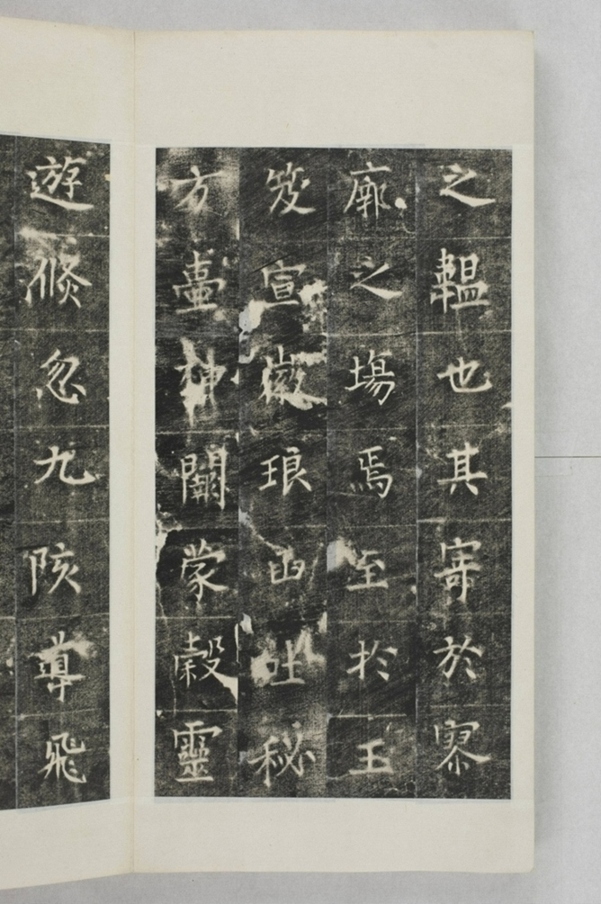 之韞也其寄於寥
廓之場焉至於玉
笈宣徽琅函吐秘
方壺神闕蒙穀靈
遊倏忽九陔導飛